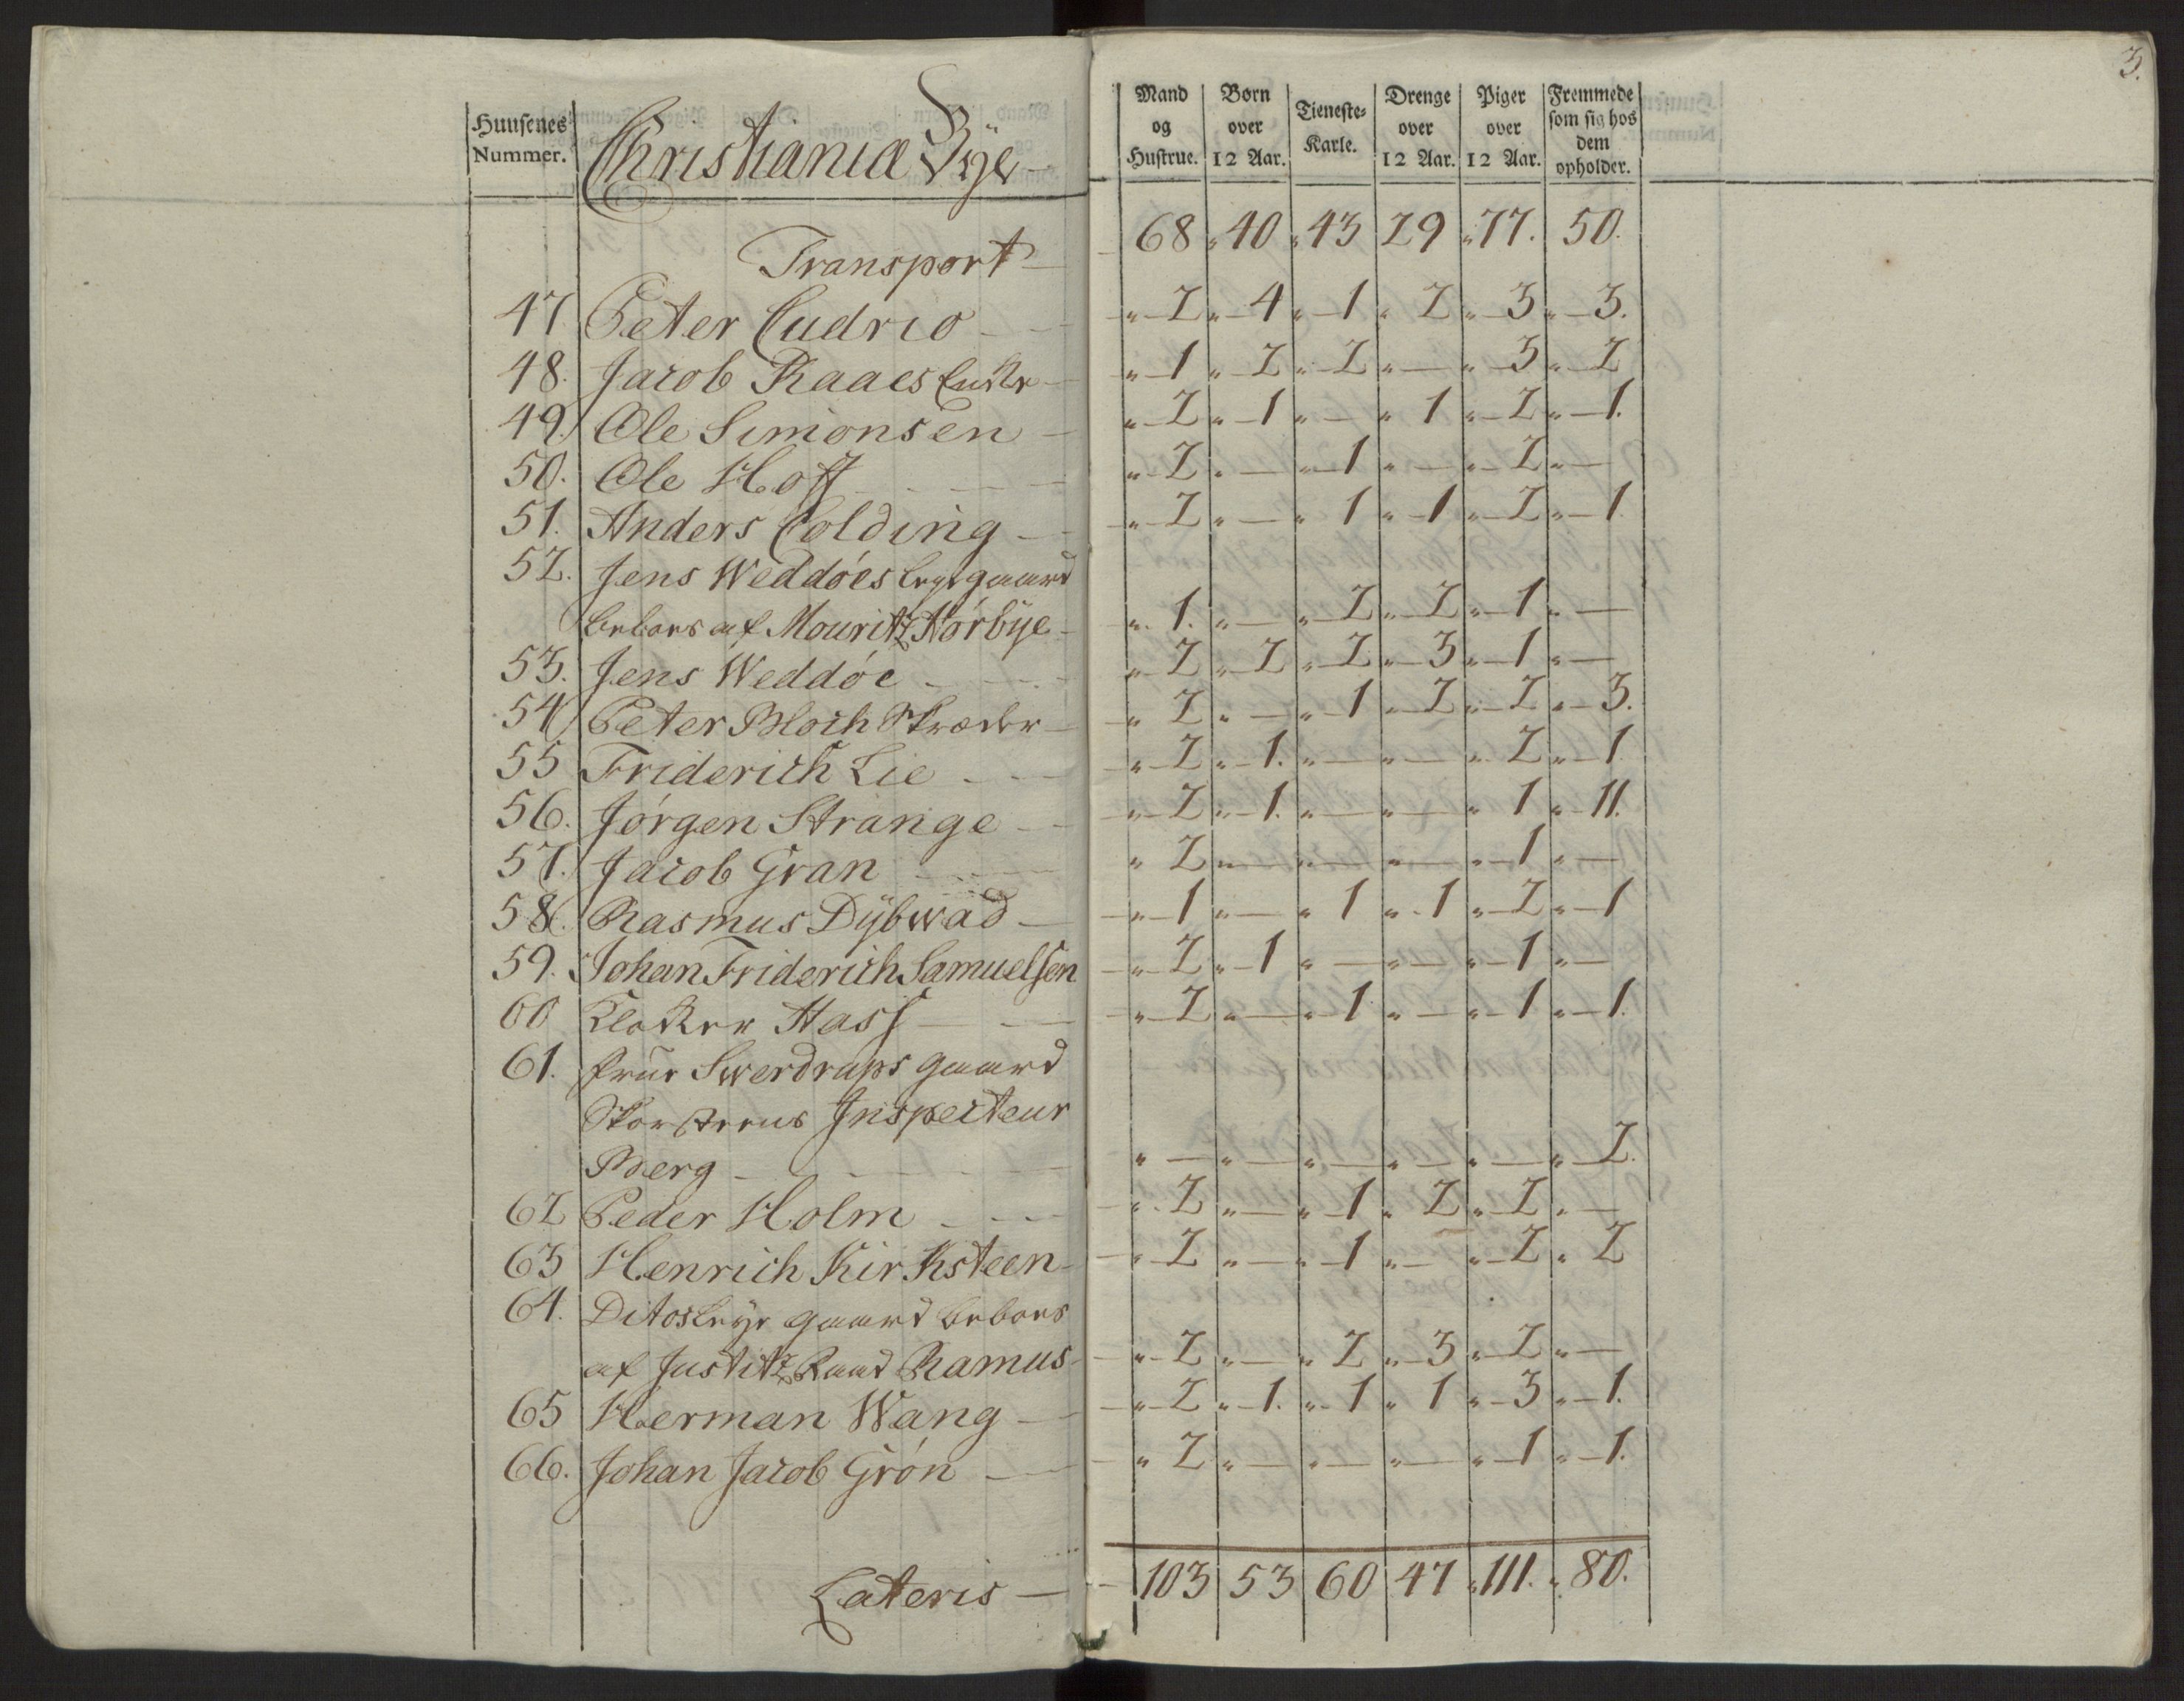 3.
Huusenes Nummer. Christianiæ Bÿe Mand og Hustrue. Børn over 12 Aar. Tieneste-Karle. Drenge over 12 Aar. Piger over 12 Aar. Fremmede som sig hos dem opholder.
Transport 68 40 43 29 77. 50.
47 Peter Cudrio 2 4 1 2 3 3.
48. Jacob Raaes Enke 1 2 2 — 3 2
49. Ole Simonsen 2 1 — 1 2 1.
50. Ole Hoff 2 — 1 — 2 —
51. Anders Colding 2 — 1 1 2 1
52. Jens Weddøes leye gaard
beboes af Mouritz Nørbÿe 1. — 2 2 1 —
53. Jens Weddøe 2 2 2 3 1 —
54 Peter Bloch Skræder 2 — 1 2 2 3.
55 Friderich Lie 2 1. — — 2 1
56. Jørgen Strange 2 1. — — 1 11.
57. Jacob Gran 2 — — — 1 —
58. Rasmus Dÿbwad 1 — 1 1 2 1
59. Johan Friderich Samuelsen 2 1 — — 1 —
60 Klokker Hass 2 — 1 — 1 1.
61. frue Swerdrups gaard
Skorsteens Inspecteur
Berg — — — — — 2.
62 Peder Holm 2 — 1 2 2 —
63 Henrich Kirksteen 2 — 1 — 2 2
64. Ditos leye gaard beboes
af Justitz Raad Ramus 2 — 2 3 2 —
65 Herman Wang 2 1. 1 1 3 1.
66. Johan Jacob Grøn 2 — — — 1 1.
Lateris 103 53 60 47 111. 80.